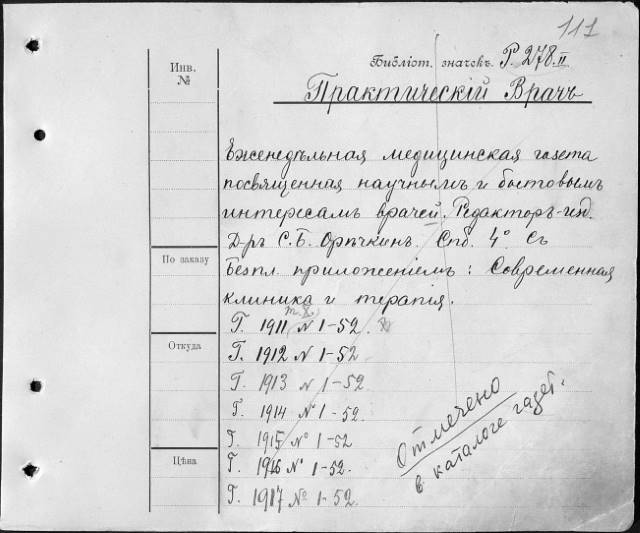 111
Библіот. значекъ Р. 278.II
Инв.
№
Практическій Врачъ
Еженедѣльная медицинская газета
посвященная научнымъ и бытовымъ
интересамъ врачей. Редакторъ-изд.
Д-ръ С. Б. Орѣчкинъ. Спб. 4° Съ
По заказу
Безпл. приложеніемъ: Современная
клиника и терапія.
т. X.
Г. 1911 № 1-52.
Откуда
Г. 1912 № 1-52
Г. 1913 № 1-52.
Г. 1914 № 1-52.
Г. 1915 № 1-52
Цѣна
Г. 1916 № 1-52.
Г. 1917 № 1-52.
Отмечено
в каталоге газет.